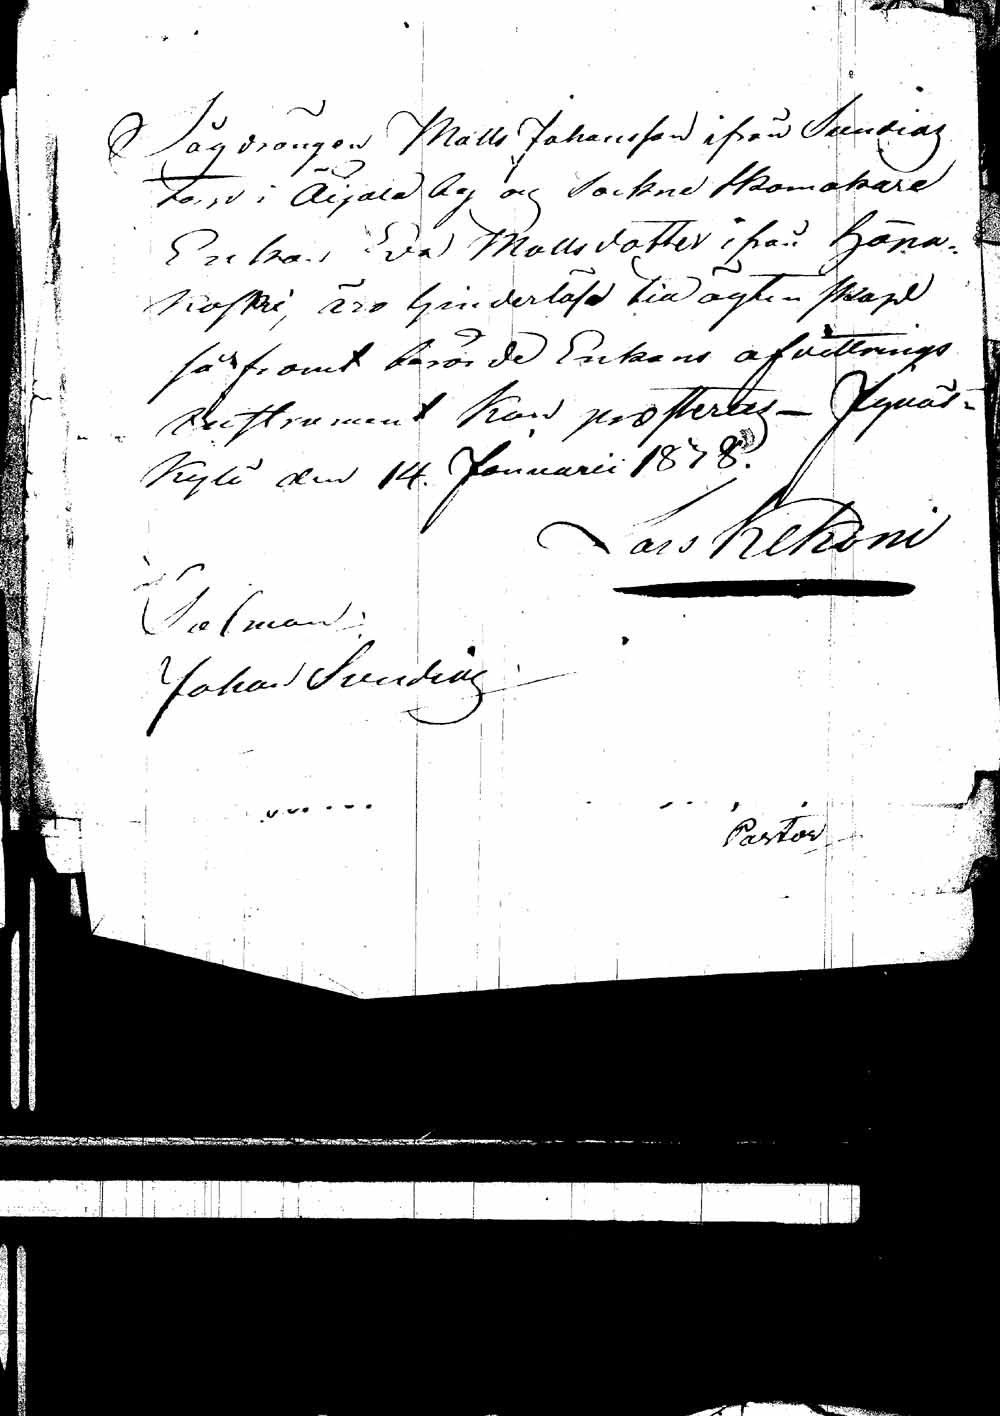 Sågdrängen Matts Johansson ifrån Sundvig
torp i Äijälä by og Sockne Skomakare
Enkan Eva Mattsdotter ifrån Häna-
koski, äro hinderlöse till ägtenskapl
såframt berörde Enkans afvittrings
instrument kan præsteras — Jyväs-
kylä den 14. Januarii 1878.
Lars Kekoni
Talman
Johan Sundvig
Pastor